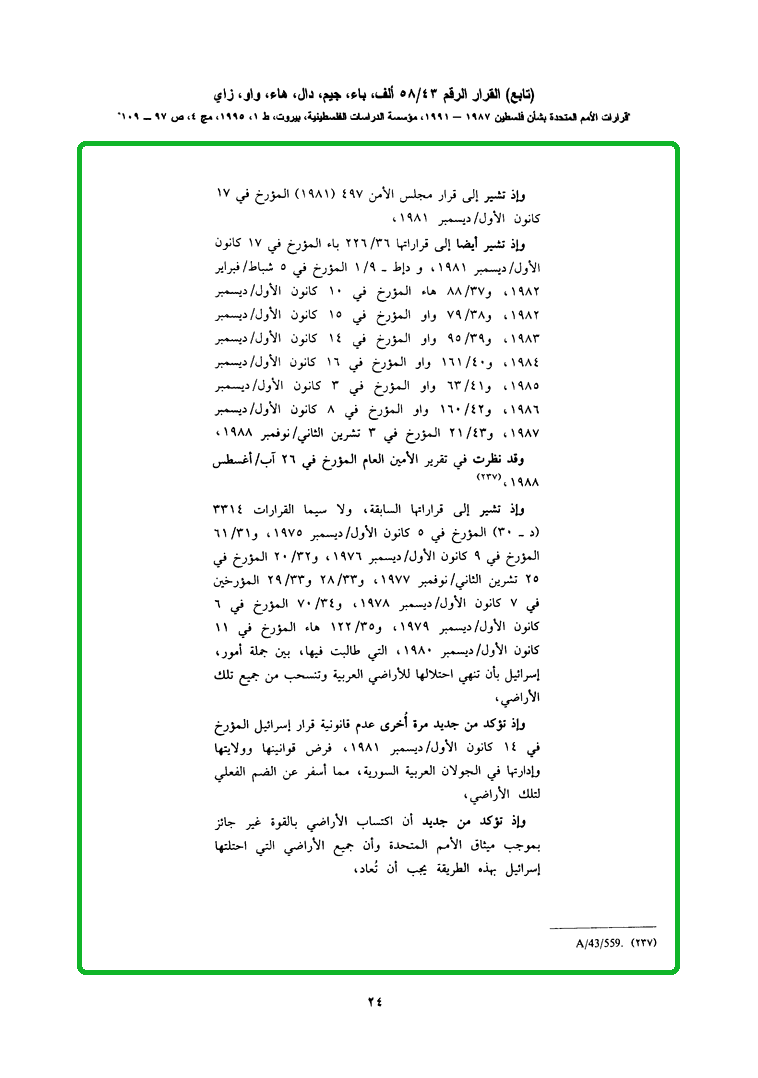 (تابع) القرار الرقم ٥٨/٤٣ ألف، باء، جيم، دال، هاء، واو، زاي
"قرارات الأمم المتحدة بشأن فلسطين ١٩٨٧ – ١٩٩١، مؤسسة الدراسات الفلسطينية، بيروت، ط ١، ١٩٩٥، مج ٤، ص ٩٧ – ١٠٩"
وإذ تشير إلى قرار مجلس الأمن ٤٩٧ (١٩٨١) المؤرخ في ١٧
كانون الأول/ديسمبر ١٩٨١،
وإذ تشير أيضا إلى قراراتها ٢٢٦/٣٦ باء المؤرخ في ١٧ كانون
الأول/ديسمبر ١٩٨١، و دإط ـ ١/٩ المؤرخ في ٥ شباط/فبراير
١٩٨٢، و٨٨/٣٧ هاء المؤرخ في ١٠ كانون الأول/ديسمبر
١٩٨٢، و٧٩/٣٨ واو المؤرخ في ١٥ كانون الأول/ديسمبر
١٩٨٣، و٩٥/٣٩ واو المؤرخ في ١٤ كانون الأول/ديسمبر
١٩٨٤، و١٦١/٤٠ واو المؤرخ في ١٦ كانون الأول/ديسمبر
١٩٨٥، و٦٣/٤١ واو المؤرخ في ٣ كانون الأول/ديسمبر
١٩٨٦، و١٦٠/٤٢ واو المؤرخ في ٨ كانون الأول/ديسمبر
١٩٨٧، و٢١/٤٣ المؤرخ في ٣ تشرين الثاني/نوفمبر ١٩٨٨،
وقد نظرت في تقرير الأمين العام المؤرخ في ٢٦ آب/أغسطس
١٩٨٨،(٢٣٧)
وإذ تشير إلى قراراتها السابقة، ولا سيما القرارات ٣٣١٤
(د ـ ٣٠) المؤرخ في ٥ كانون الأول/ديسمبر ١٩٧٥، و٦١/٣١
المؤرخ في ٩ كانون الأول/ديسمبر ١٩٧٦، و٢٠/٣٢ المؤرخ في
٢٥ تشرين الثاني/نوفمبر ١٩٧٧، و٢٨/٣٣ و٢٩/٣٣ المؤرخين
في ٧ كانون الأول/ديسمبر ١٩٧٨، و٧٠/٣٤ المؤرخ في ٦
كانون الأول/ديسمبر ١٩٧٩، و١٢٢/٣٥ هاء المؤرخ في ١١
كانون الأول/ديسمبر ١٩٨٠، التي طالبت فيها، بين جملة أمور،
إسرائيل بأن تنهي احتلالها للأراضي العربية وتنسحب من جميع تلك
الأراضي،
وإذ تؤكد من جديد مرة أُخرى عدم قانونية قرار إسرائيل المؤرخ
في ١٤ كانون الأول/ديسمبر ١٩٨١، فرض قوانينها وولايتها
وإدارتها في الجولان العربية السورية، مما أسفر عن الضم الفعلي
لتلك الأراضي،
وإذ تؤكد من جديد أن اكتساب الأراضي بالقوة غير جائز
بموجب ميثاق الأمم المتحدة وأن جميع الأراضي التي احتلتها
إسرائيل بهذه الطريقة يجب أن تُعاد،
(٢٣٧) A/43/559.
٢٤